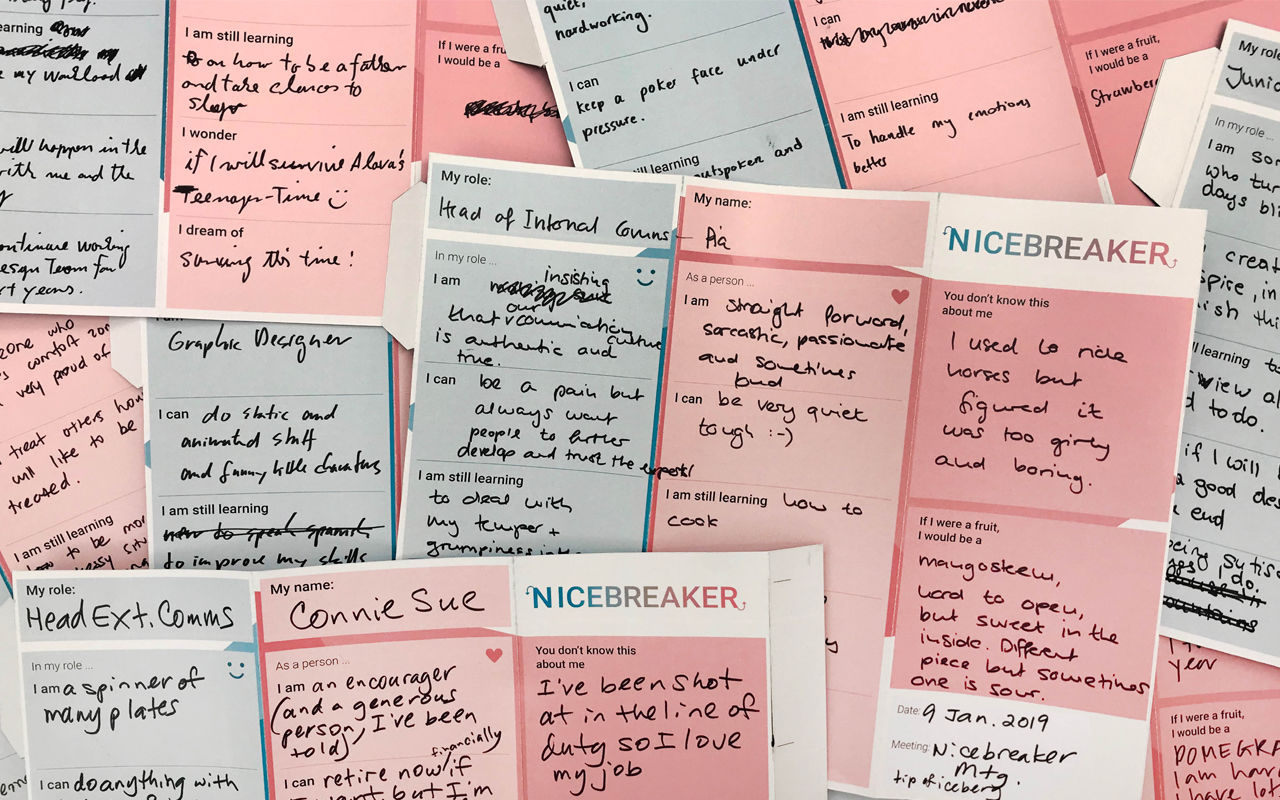 learning
my workload
will happen in the
with me and the
continue working
Design Team for
years.
I am still learning
on how to be a father
and take chances to
I wonder
if I will survive Alava's
Teenager-Time
I dream of
surviving this time!
If I were a fru
I would be a
quiet,
hardworking.
I can
keep a poker face under
pressure.
still learning
outspoken and
I can
I am still learning
To handle my emotions
better
If I were a fruit,
I would be a
Strawber
My role
Junio
In my role ...
I am
who tur
days bli
creat
spire, in
ish thi
learning to
view al
d to do.
if I will b
a good des
end
yes, do.
zone who
's comfort zon
very proud of
treat others how
will like to be
treated.
I am still learning
to be mor
I am
Graphic Designer
I can do static and
animated stuff
and funny little characters
I am still learning
how to speak spanish
to improve my skills
My role:
Head of Internal Comms
In my role ...
I am insisting
that our communication culture
is authentic and
true.
I can be a pain but
always want
people to further
develop and trust the experts!
I am still learning
to deal with
my temper +
grumpiness
My name:
Pia
As a person ...
I am straight forward,
sarcastic, passionate
and sometimes
bad
I can be very quiet
tough :-)
I am still learning how to
cook
NICEBREAKER
You don't know this
about me
I used to ride
horses but
figured it
was too girly
and boring.
If I were a fruit,
I would be a
mangosteen,
hard to open,
but sweet in the
inside. Different
piece but sometimes
one is sour.
Date: 9 Jan. 2019
Meeting: Nicebreaker
Mtg.
tip of iceberg
My role:
Head Ext. Comms
In my role ...
I am a spinner of
many plates
I can do anything with
My name:
Connie Sue
As a person ...
I am an encourager
(and a generous
person, I've been
told)
I can retire now financially if
I want, but I'm
NICEBREAKER
You don't know this
about me
I've been shot
at in the line of
duty so I love
my job
year
If I were a fruit,
I would be a
POMEGRA
I am hard
I have lots